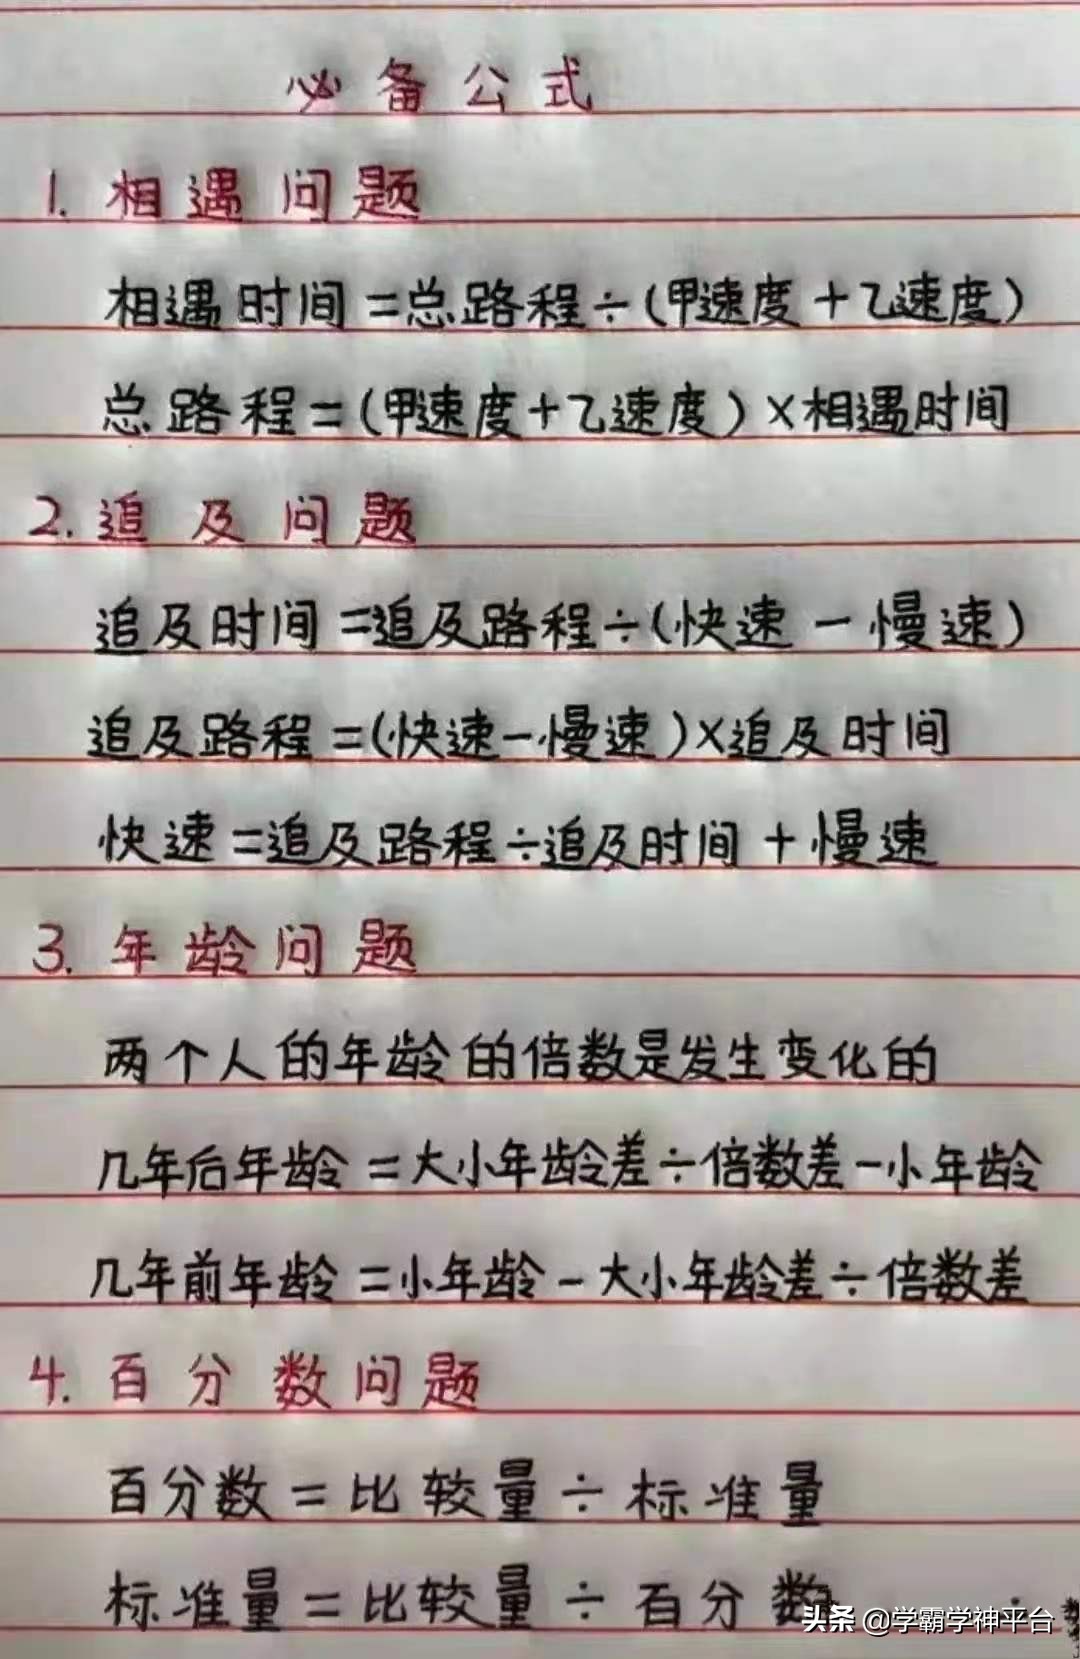 必备公式
1. 相遇问题
相遇时间=总路程÷(甲速度+乙速度)
总路程=(甲速度+乙速度)×相遇时间
2. 追及问题
追及时间=追及路程÷(快速-慢速)
追及路程=(快速-慢速)×追及时间
快速=追及路程÷追及时间+慢速
3. 年龄问题
两个人的年龄的倍数是发生变化的
几年后年龄=大小年龄差÷倍数差-小年龄
几年前年龄=小年龄-大小年龄差÷倍数差
4. 百分数问题
百分数=比较量÷标准量
标准量=比较量÷百分数
头条 @学霸学神平台